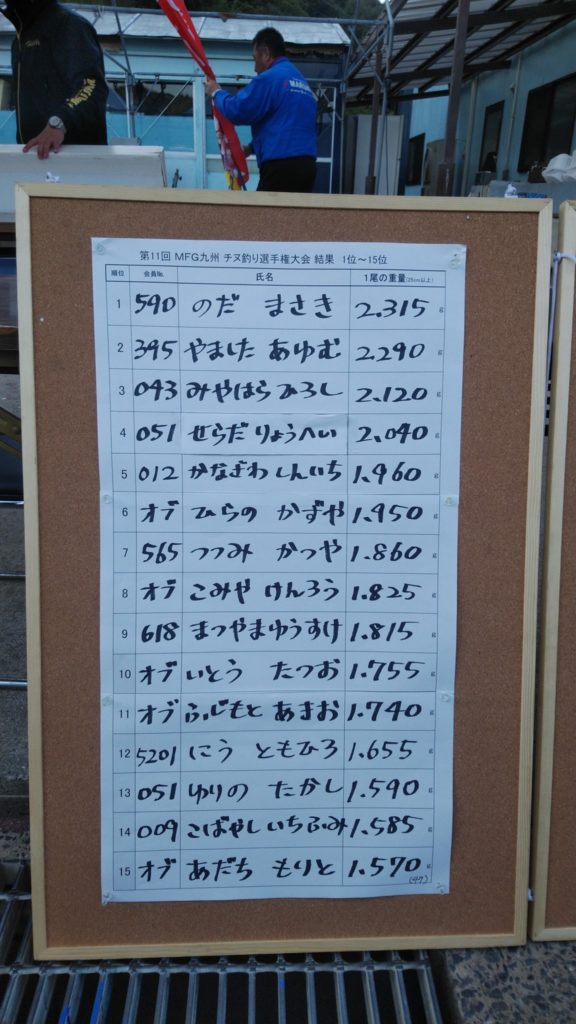 第11回 MFG九州 チヌ釣り選手権大会 結果 1位～15位
順位 会員No. 氏名 1尾の重量(25cm以上)
1 590 のだ まさき 2.315 g
2 395 やました あゆむ 2.290 g
3 043 みやはら ひろし 2.120 g
4 051 せらだ りょうへい 2.040 g
5 012 かなざわ しんいち 1.960 g
6 オブ ひらの かずや 1.950 g
7 565 つつみ かつや 1.860 g
8 オブ こみや けんろう 1.825 g
9 618 まつやまゆうすけ 1.815 g
10 オブ いとう たつお 1.755 g
11 オブ ふじもと あきお 1.740 g
12 5201 にう ともひろ 1.655 g
13 051 ゆりの たかし 1.590 g
14 009 こばやし いちふみ 1.585 g
15 オブ あだち もりと 1.570 g
(47)